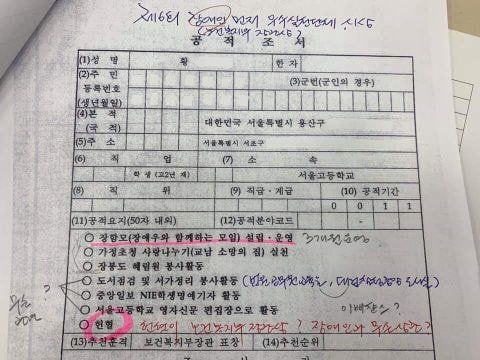 제6회 장애인 먼저 우수실천단체 시상
(보건복지부 장관상)
공 적 조 서
(1)성 명 황 한 자
(2)주 민
등록번호
(생년월일) (3)군번(군인의 경우)
(4)본 적
(국 적) 대한민국 서울특별시 용산구
(5)주 소 서울특별시 서초구
(6) 직 업 (7) 소 속
학 생 (고2년 재) 서울고등학교
(8) 직 위 (9) 직급·계급 (10) 공적기간
0 0 1 1
(11)공적요지(50자 내외) (12)공적분야코드 -
○ 장함모(장애우와 함께하는 모임) 설립·운영 3개월운영
○ 가정초청 사랑나누기(교남 소망의 집) 실천
○ 장봉도 혜림원 봉사활동
○ 도서점검 및 서가정리 봉사활동
○ 중앙일보 NIE학생명예기자 활동
○ 서울고등학교 영자신문 편집장으로 활동
○ 헌혈 헌혈이 보건복지부 장관상? 장애인와 무슨 상관?
(13)추천훈격 보건복지부장관 표창 (14)추천순위